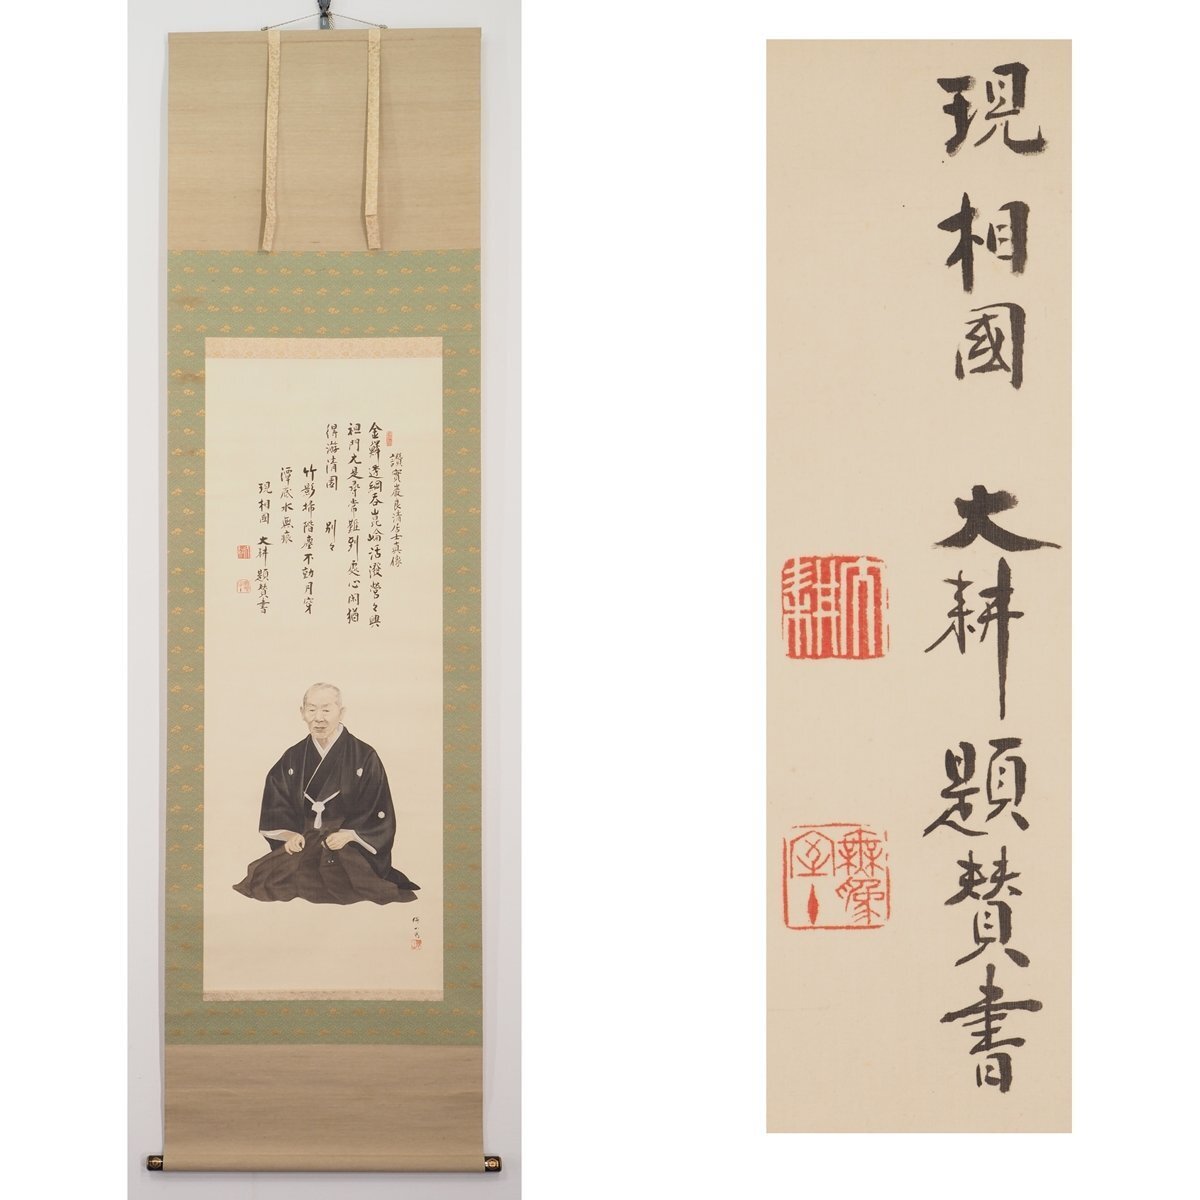 讃實巖良清居士真像
金鱗透網呑崑崙活潑營々興
祖門尤是尋常難到處心閑猶
得游清園 別々
竹影掃階塵不動月穿
潭底水無痕
現相國 大耕題賛書
現相國 大耕題賛書
大耕